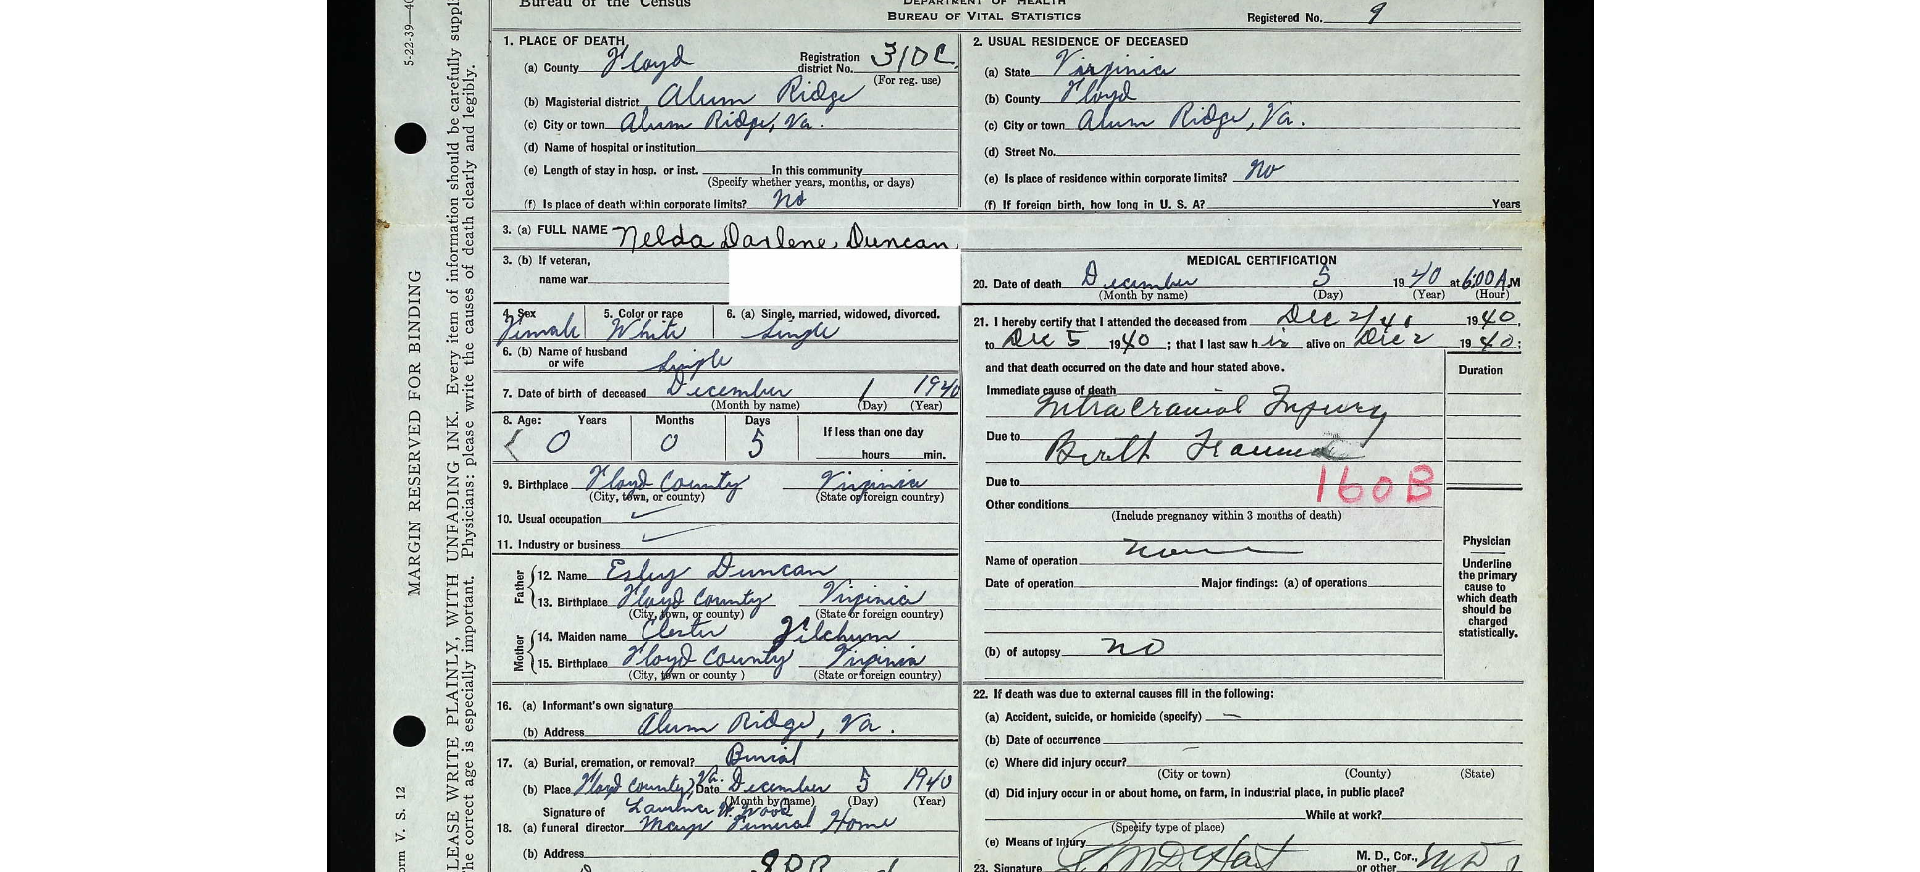 Bureau of the Census
DEPARTMENT OF HEALTH
BUREAU OF VITAL STATISTICS
Registered No. 9
5-22-39—40
MARGIN RESERVED FOR BINDING
LEASE WRITE PLAINLY, WITH UNFADING INK. Every item of information should be carefully suppl
he correct age is especially important. Physicians: please write the causes of death clearly and legibly.
orm V. S. 12
1. PLACE OF DEATH
(a) County Floyd Registration district No. 31DC
(For reg. use)
(b) Magisterial district Alum Ridge
(c) City or town Alum Ridge, Va.
(d) Name of hospital or institution
(e) Length of stay in hosp. or inst. In this community
(Specify whether years, months, or days)
(f) Is place of death within corporate limits? No
2. USUAL RESIDENCE OF DECEASED
(a) State Virginia
(b) County Floyd
(c) City or town Alum Ridge, Va.
(d) Street No.
(e) Is place of residence within corporate limits? No
(f) If foreign birth, how long in U. S. A? Years
3. (a) FULL NAME Nelda Darlene Duncan
3. (b) If veteran,
name war
4. Sex Female
5. Color or race White
6. (a) Single, married, widowed, divorced. Single
6. (b) Name of husband or wife Single
7. Date of birth of deceased December 1 1940
(Month by name) (Day) (Year)
8. Age: Years Months Days If less than one day
0 0 5 hours min.
9. Birthplace Floyd County Virginia
(City, town, or county) (State or foreign country)
10. Usual occupation
11. Industry or business
Father
12. Name Esley Duncan
13. Birthplace Floyd County Virginia
(City, town, or county) (State or foreign country)
Mother
14. Maiden name
15. Birthplace Floyd County Virginia
(City, town or county) (State or foreign country)
16. (a) Informant's own signature
(b) Address Alum Ridge, Va.
17. (a) Burial, cremation, or removal? Burial
(b) Place Floyd County, Va. Date December 5 1940
(Month by name) (Day) (Year)
Signature of Lawrence W. Wood
18. (a) funeral director Funeral Home
(b) Address
MEDICAL CERTIFICATION
20. Date of death December 5 1940 at 6:00 A.M
(Month by name) (Day) (Year) (Hour)
21. I hereby certify that I attended the deceased from Dec 2/40 1940,
to Dec 5 1940; that I last saw h alive on Dec 2 1940;
and that death occurred on the date and hour stated above.
Duration
Immediate cause of death
Intracranial Injury
Due to Birth Trauma
Due to
160B
Other conditions
(Include pregnancy within 3 months of death)
Name of operation none
Date of operation Major findings: (a) of operations
(b) of autopsy no
Physician
Underline
the primary
cause to
which death
should be
charged
statistically.
22. If death was due to external causes fill in the following:
(a) Accident, suicide, or homicide (specify) —
(b) Date of occurrence
(c) Where did injury occur?
(City or town) (County) (State)
(d) Did injury occur in or about home, on farm, in industrial place, in public place?
While at work?
(Specify type of place)
(e) Means of Injury
23. Signature M. D., Cor., or other MD